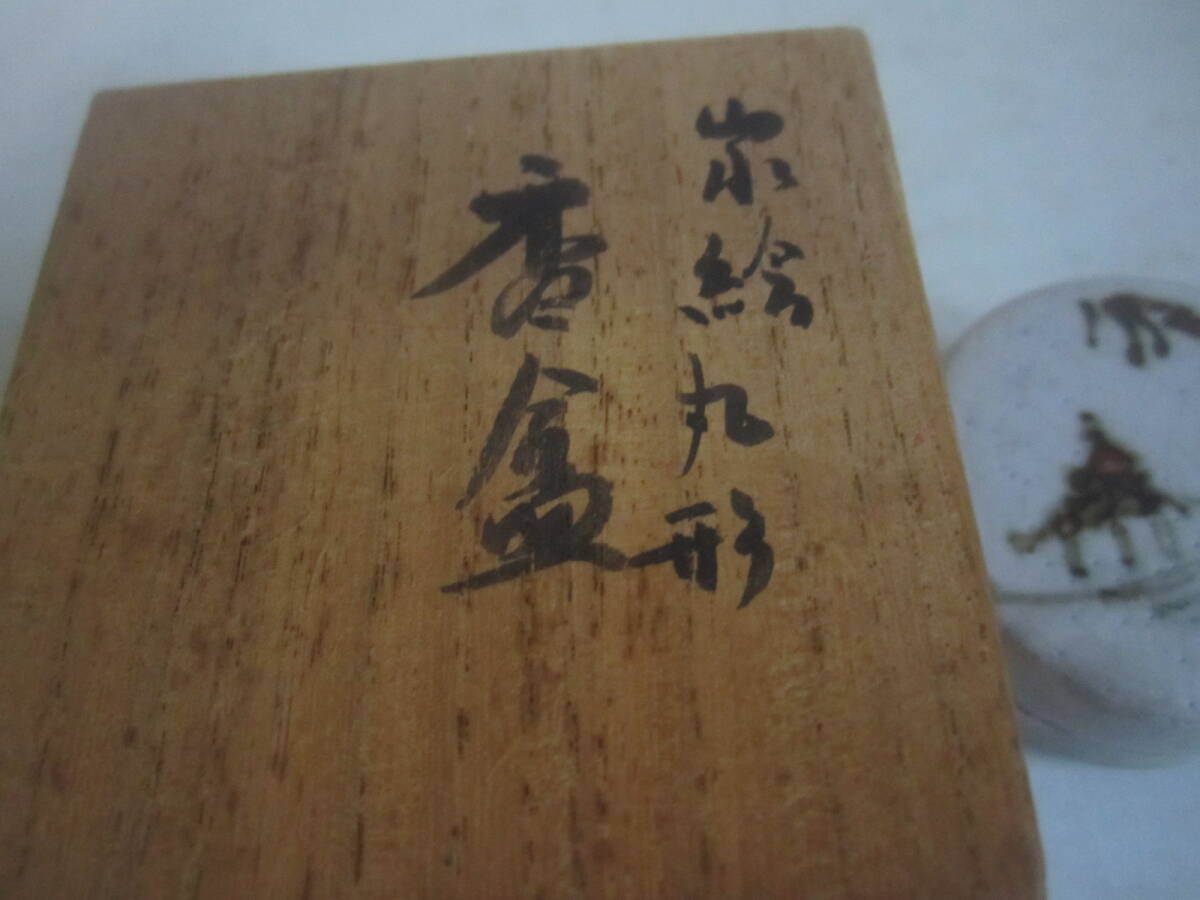 家絵丸形
香盒